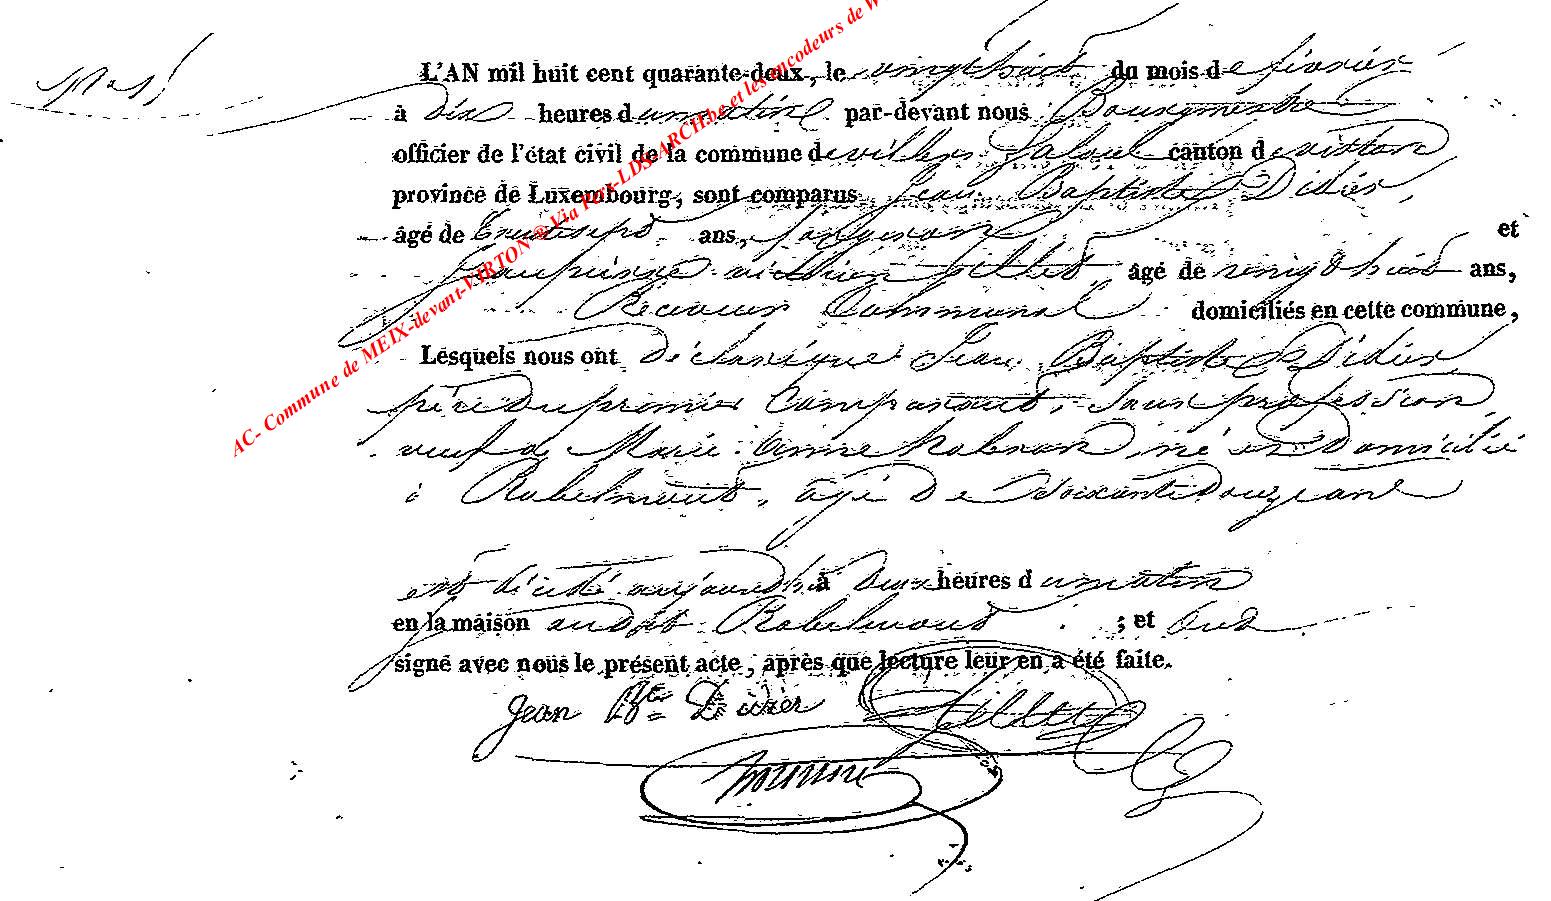 N° 5
L'AN mil huit cent quarante-deux, le vingt huit du mois de février
à dix heures du matin par-devant nous Bourgmestre
officier de l'état civil de la commune de villers la loue canton de virton
province de Luxembourg, sont comparus Jean Baptiste Didier,
âgé de trente sept ans, et
Jean pierre gillet âgé de vingt huit ans,
Receveur Communal domiciliés en cette commune,
Lesquels nous ont déclaré que Jean Baptiste Didier
père du premier Comparant, sans profession
veuf de Marie Anne né et Domicilié
à Robelmont, âgé De Soixante douze ans
est décédé aujourd'hui à Deux heures du matin
en la maison audit Robelmont ; et ont
signé avec nous le présent acte, après que lecture leur en a été faite.
Jean Bte Didier Gillet
AC- Commune de MEIX-devant-VIRTON ® Via Fors-LDS-ARCH.be et les encodeurs de